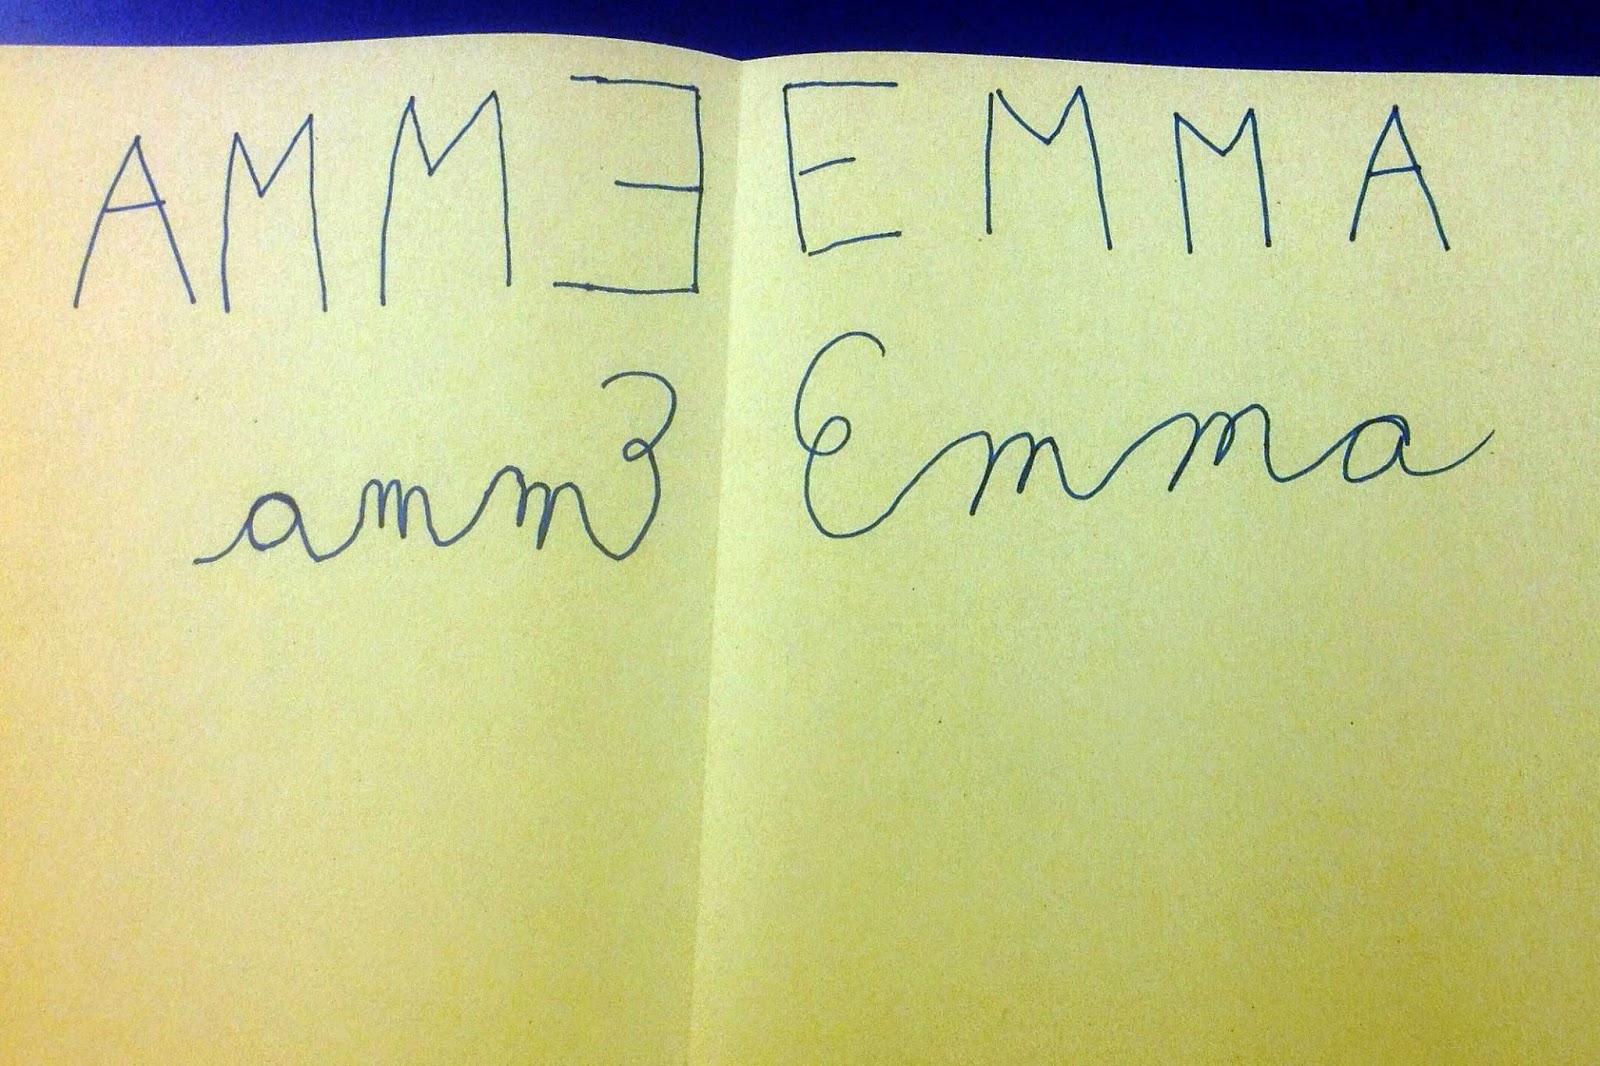 AMMƎ EMMA
ammƐ Emma